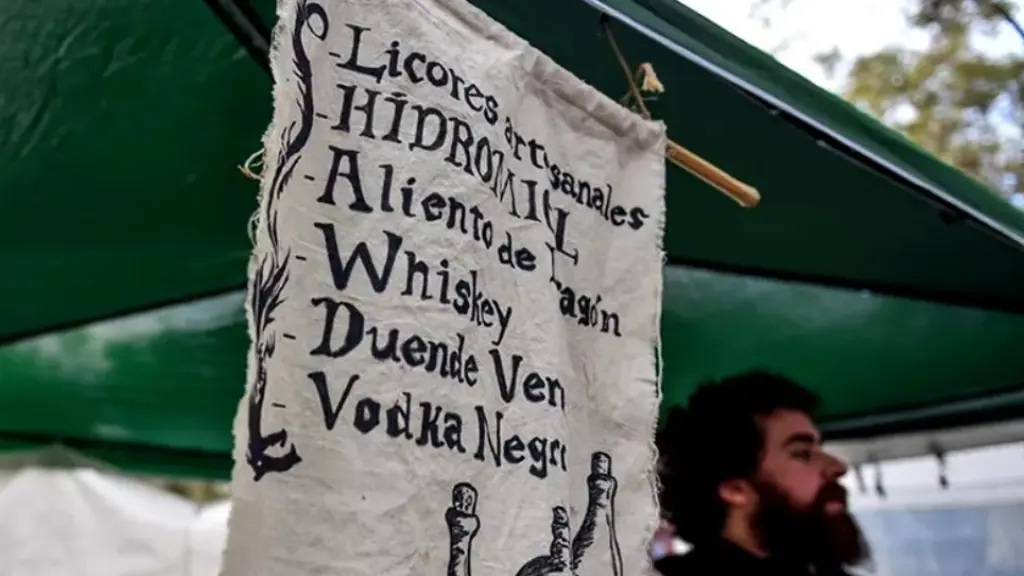 -Licores artesanales
-HIDROMIEL
-Aliento de Dragón
-Whiskey
-Duende Ver
-Vodka Negr